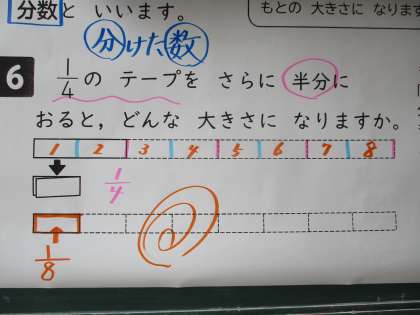 分数と いいます。
もとの 大きさに なります
分けた数
6 1/4の テープを さらに 半分に
おると，どんな 大きさに なりますか。
1 2 3 4 5 6 7 8
1/4
1/8